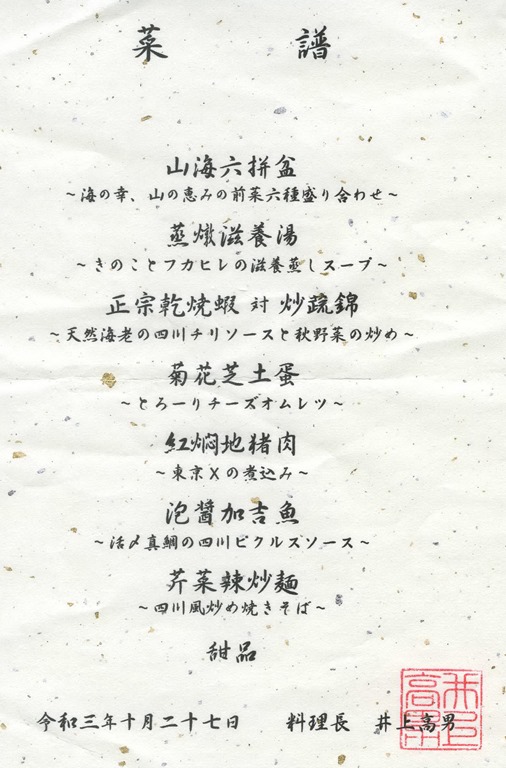 菜 譜
山海六拼盆
~海の幸、山の恵みの前菜六種盛り合わせ~
蒸燉滋養湯
~きのことフカヒレの滋養蒸しスープ~
正宗乾焼蝦 対 炒蔬錦
~天然海老の四川チリソースと秋野菜の炒め~
菊花芝士蛋
~とろーりチーズオムレツ~
紅燜地猪肉
~東京Xの煮込み~
泡醬加吉魚
~活〆真鯛の四川ピクルスソース~
芹菜辣炒麺
~四川風炒め焼きそば~
甜品
令和三年十月二十七日 料理長 井上高男
井上高男